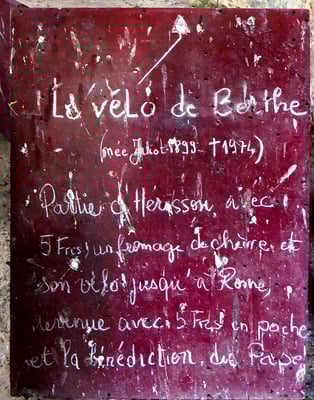 Le vélo de Berthe
(née Jabot 1899 - †1974)
Partie d'Hérisson, avec
5 Frcs, un fromage de chèvre et
son vélo jusqu'à Rome,
revenue avec 5 Frcs en poche
et la bénédiction du Pape